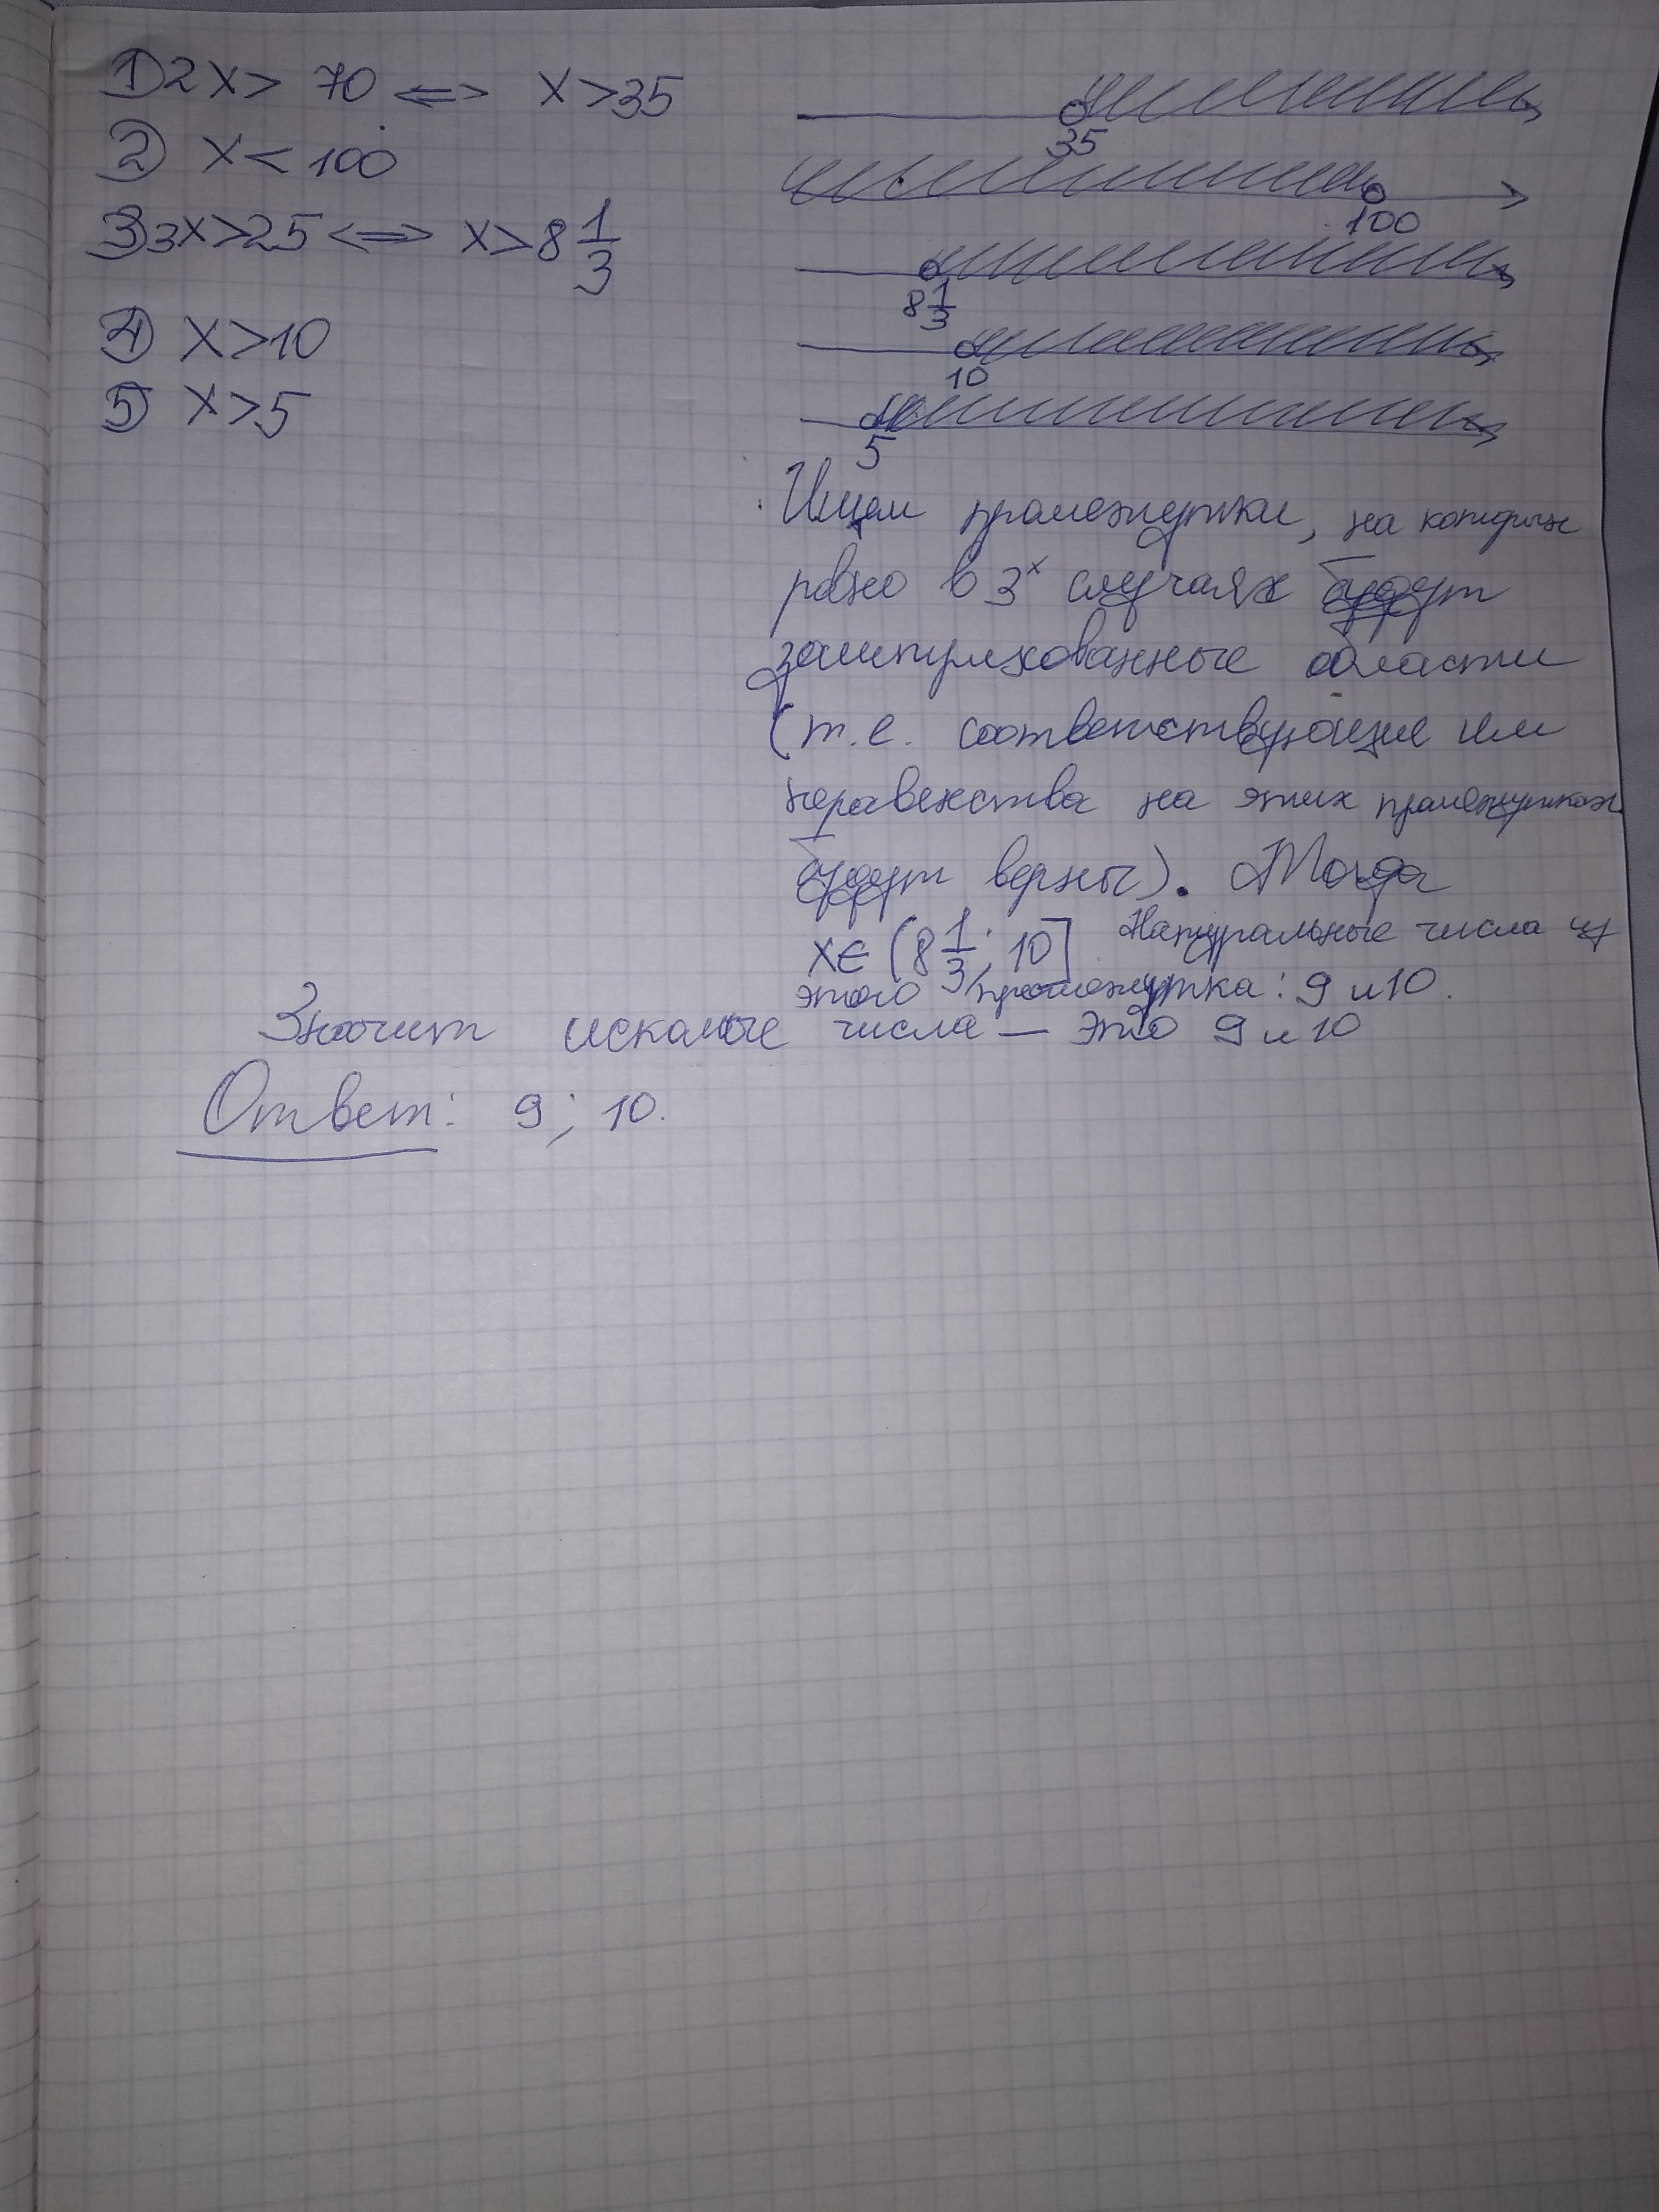 1) 2x > 70 <=> x > 35
35
2) x < 100
100
3) 3x > 25 <=> x > 8 1/3
8 1/3
4) x > 10
10
5) x > 5
5
Ищем промежутки, на которых
ровно в 3х случаях будут
заштрихованные области
(т.е. соответствующие им
неравенства на этих промежутках
будут верны). Тогда
x ∈ (8 1/3; 10] Натуральные числа из
этого промежутка: 9 и 10.
Значит искомые числа — это 9 и 10
Ответ: 9; 10.